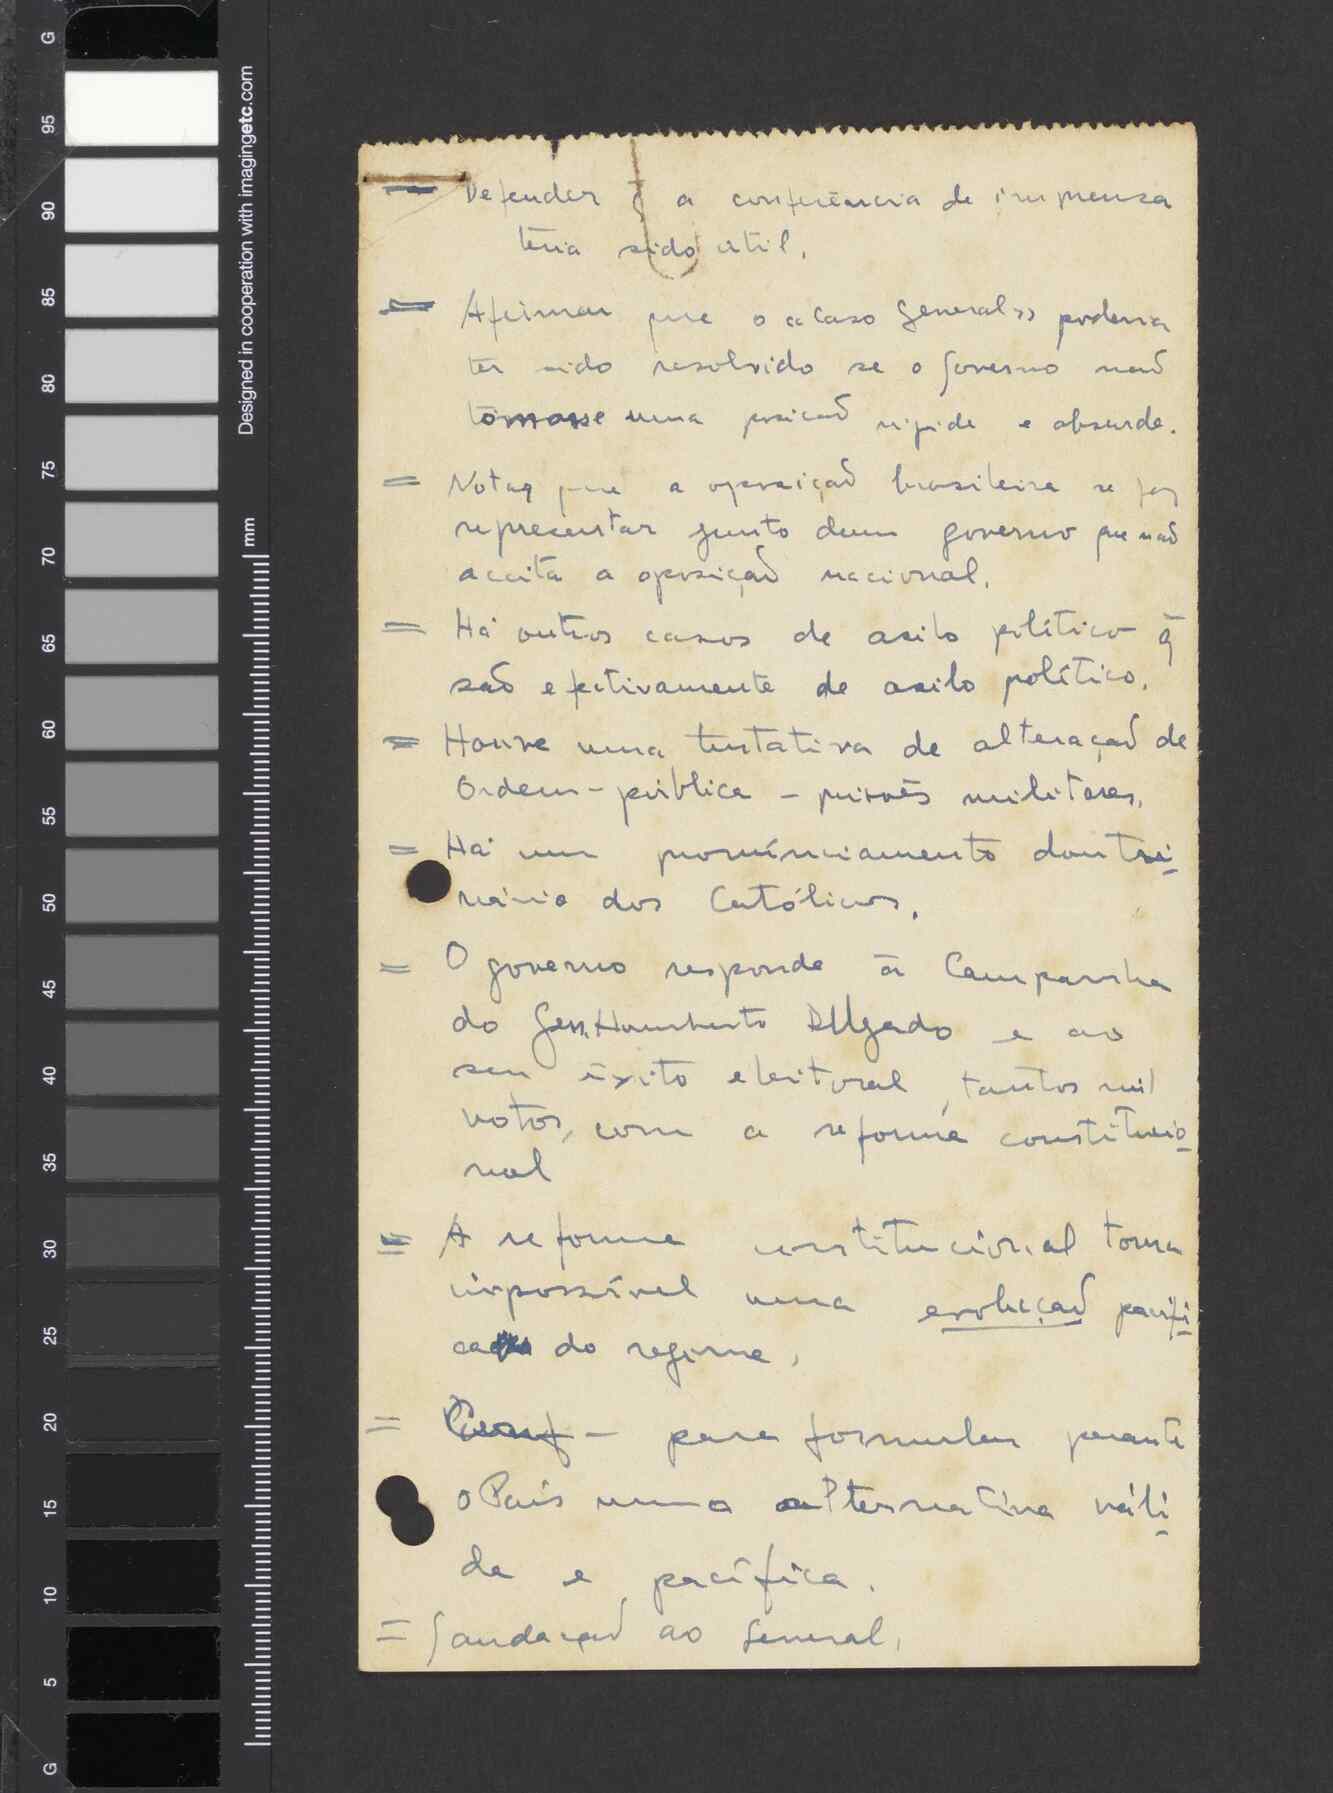 = Defender q̃ a conferência de imprensa
teria sido útil.
= Afirmar que o «caso General» poderia
ter sido resolvido se o Governo não
tomasse uma posição rigida e absurda.
= Notar que a oposição brasileira se faz
representar junto dum governo que não
aceita a oposição nacional.
= Há outros casos de asilo político q̃
são efectivamente de asilo político.
= Houve uma tentativa de alteração de
Ordem-pública - prisões militares.
= Há um pronúnciamento doutri-
nário dos Católicos.
= O governo responde à Campanha
do Gen. Humberto Delgado e ao
seu êxito eleitoral, tantos mil
votos, com a reforma constitucio-
nal
= A reforma constitucional torna
impossível uma evolução pacífi-
ca do regime.
= - para formular perante
o País uma alternativa váli-
da e pacífica.
= Saudação ao General.
G
95
90
85
80
75
70
65
60
55
50
45
40
35
30
25
20
15
10
5
G
Designed in cooperation with imagingetc.com
mm